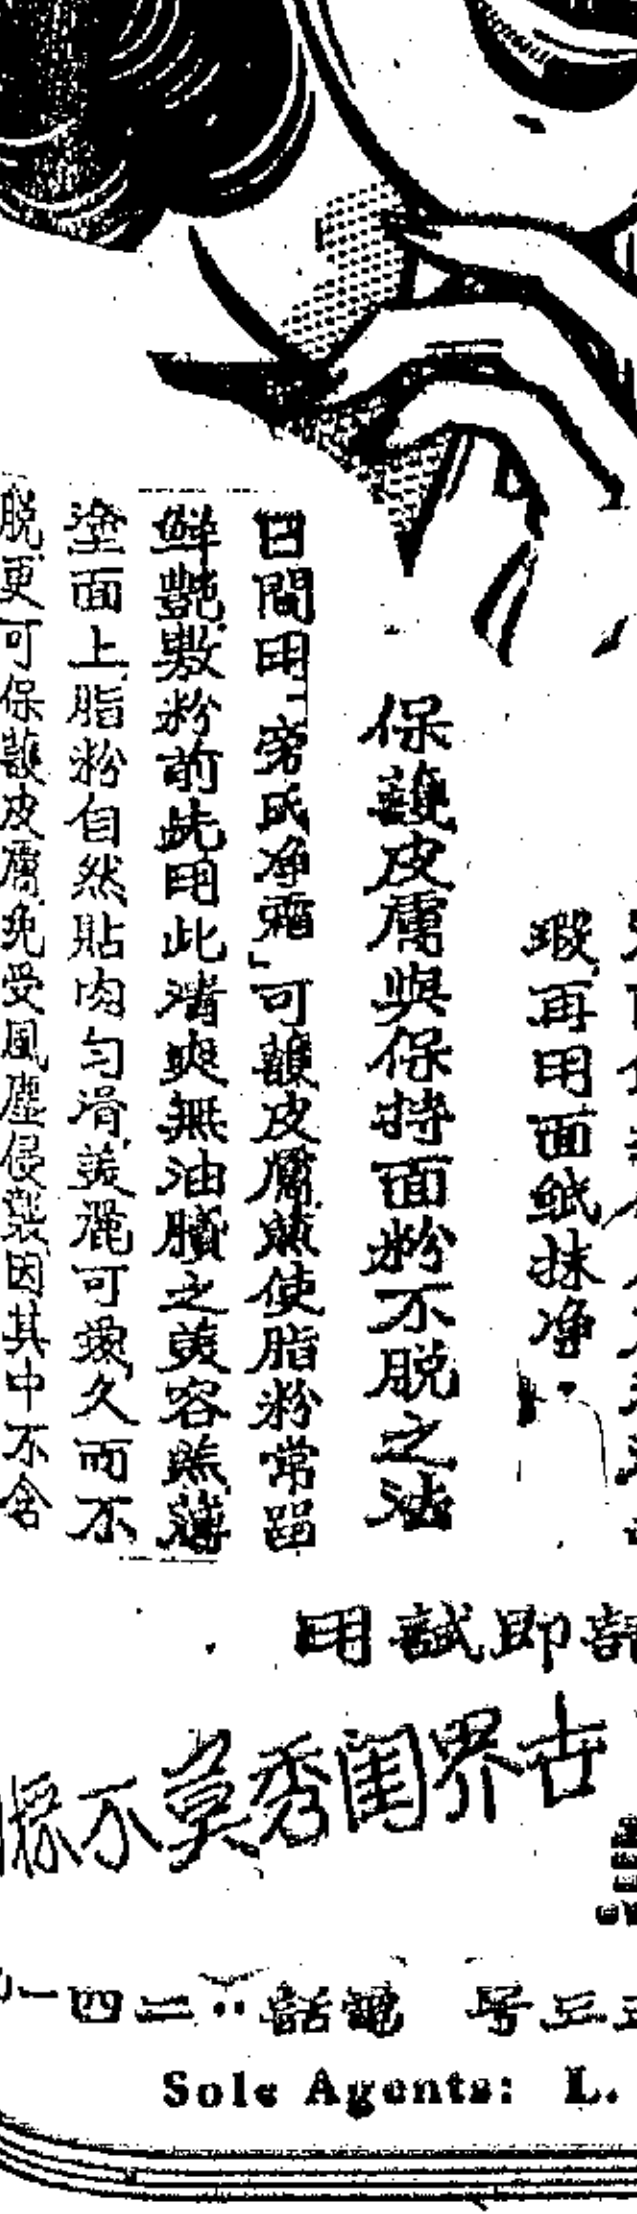 瑕再用面紙抹净．
保護皮膚與保持面粉不脱之法
日間用「旁氏净霜」可護皮膚兼使脂粉常留
鮮艷敷粉前先用此清爽無油膩之美容霜薄
塗面上脂粉自然貼肉勻滑美麗可愛久而不
脱更可保護皮膚免受風塵侵襲因其中不含
即試用
世界閨秀莫不採用
三号 電話：二四一
Sole Agents: L.